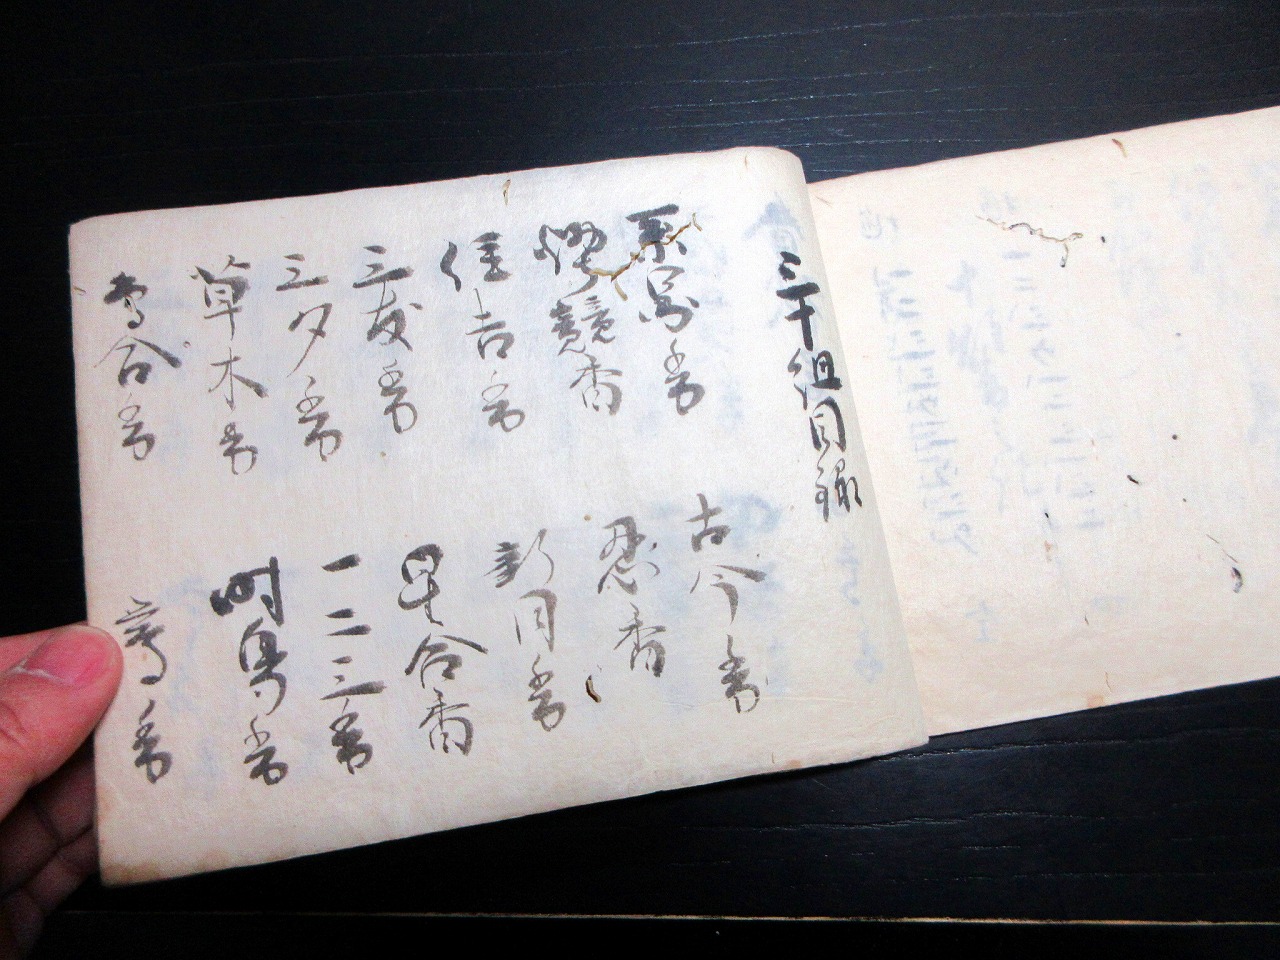 三十組目録
系図香
古今香
煙競香
忍香
住吉香
新月香
三友香
星合香
三夕香
一二三香
草木香
時鳥香
鳥合香
鶯香